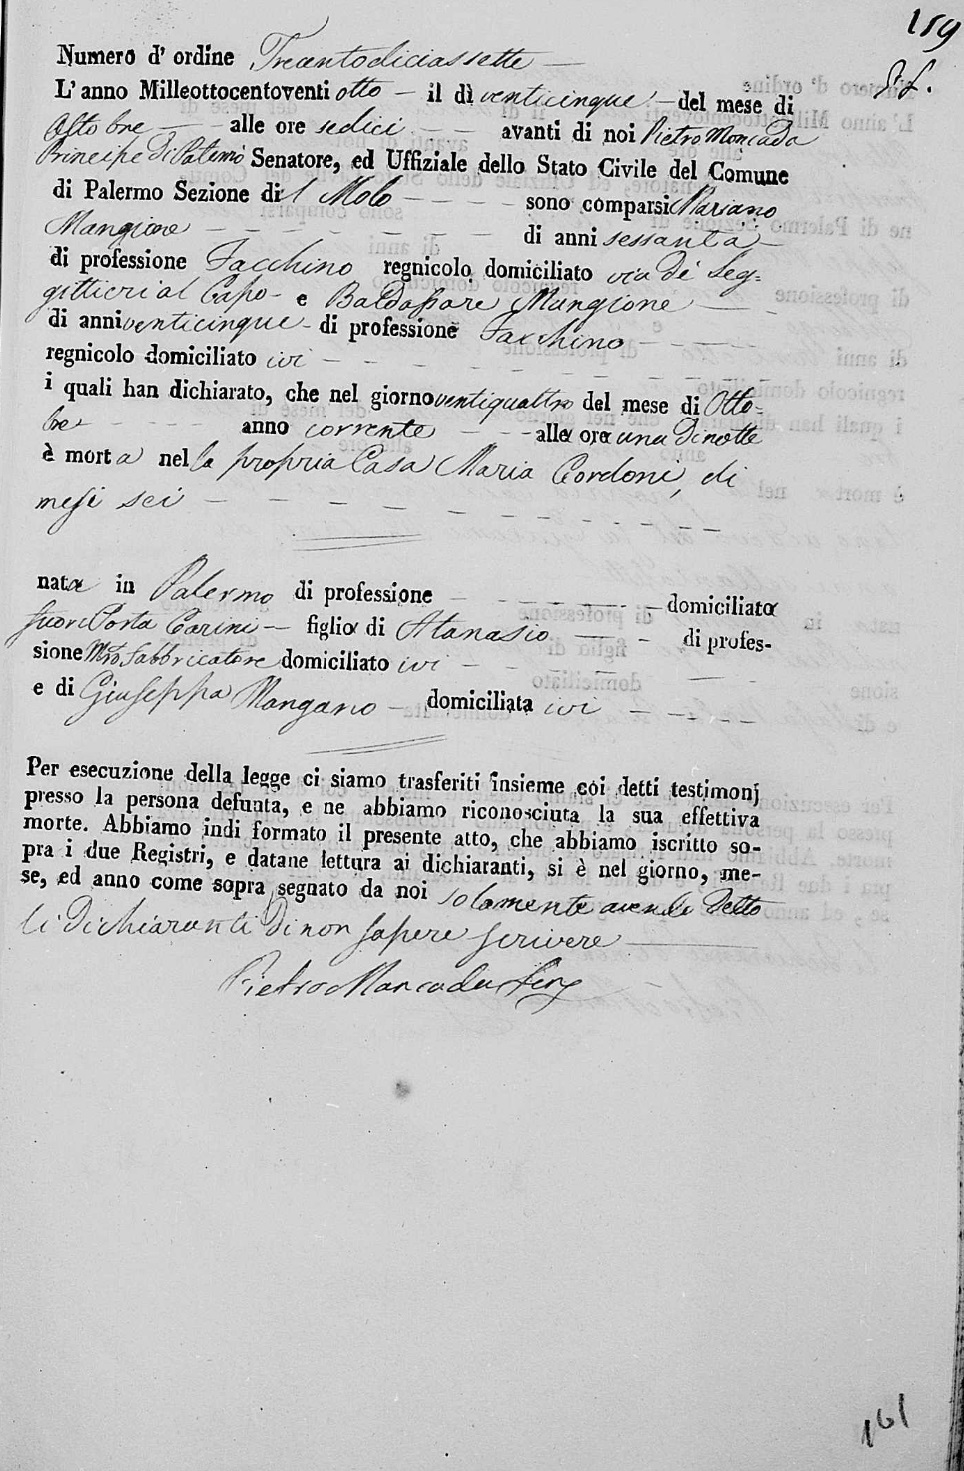 159
Numero d' ordine Trecentodiciassette
L' anno Milleottocentoventi otto - il dì venticinque - del mese di
Ottobre - alle ore sedici - avanti di noi Pietro Moncada
Principe di Paternò Senatore, ed Uffiziale dello Stato Civile del Comune
di Palermo Sezione del Molo - sono comparsi Mariano
Mangione - di anni sessanta -
di professione Facchino regnicolo domiciliato via de Seg-
gittieri al Capo - e Baldassare Mangione -
di anni venticinque - di professione Facchino -
regnicolo domiciliato ivi -
i quali han dichiarato, che nel giorno ventiquattro del mese di Otto-
bre - anno corrente - alle ore una di notte
è morta nella propria Casa Maria Cordoni, di
mesi sei -
nata in Palermo di professione - domiciliata
fuori Porta Carini - figlia di Atanasio - di profes-
sione Mro fabbricatore domiciliato ivi -
e di Giuseppa Mangano - domiciliata ivi -
Per esecuzione della legge ci siamo trasferiti insieme coi detti testimonj
presso la persona defunta, e ne abbiamo riconosciuta la sua effettiva
morte. Abbiamo indi formato il presente atto, che abbiamo iscritto so-
pra i due Registri, e datane lettura ai dichiaranti, si è nel giorno, me-
se, ed anno come sopra segnato da noi solamente avendo detto
li dichiaranti di non sapere scrivere
Pietro Moncada
161